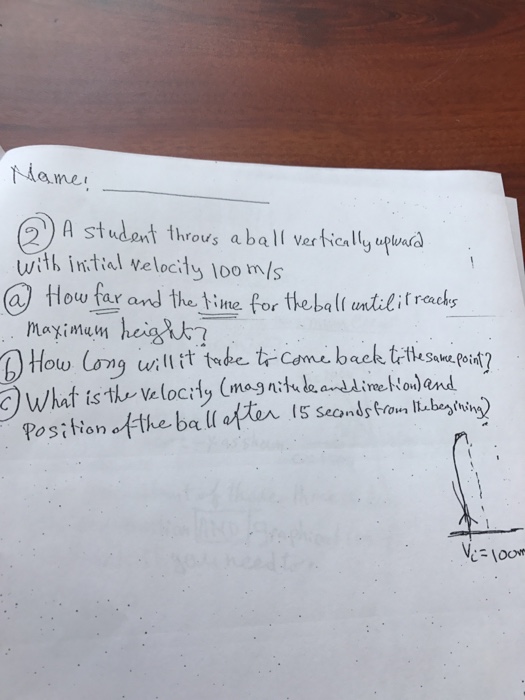 Name:
② A student throws a ball vertically upward
with initial velocity 100 m/s
ⓐ How far and the time for the ball until it reachs
maximum height?
ⓑ How long will it take to come back to the same point?
ⓒ What is the velocity (magnitude and direction) and
Position of the ball after 15 seconds from the begining?
Vi = 100m